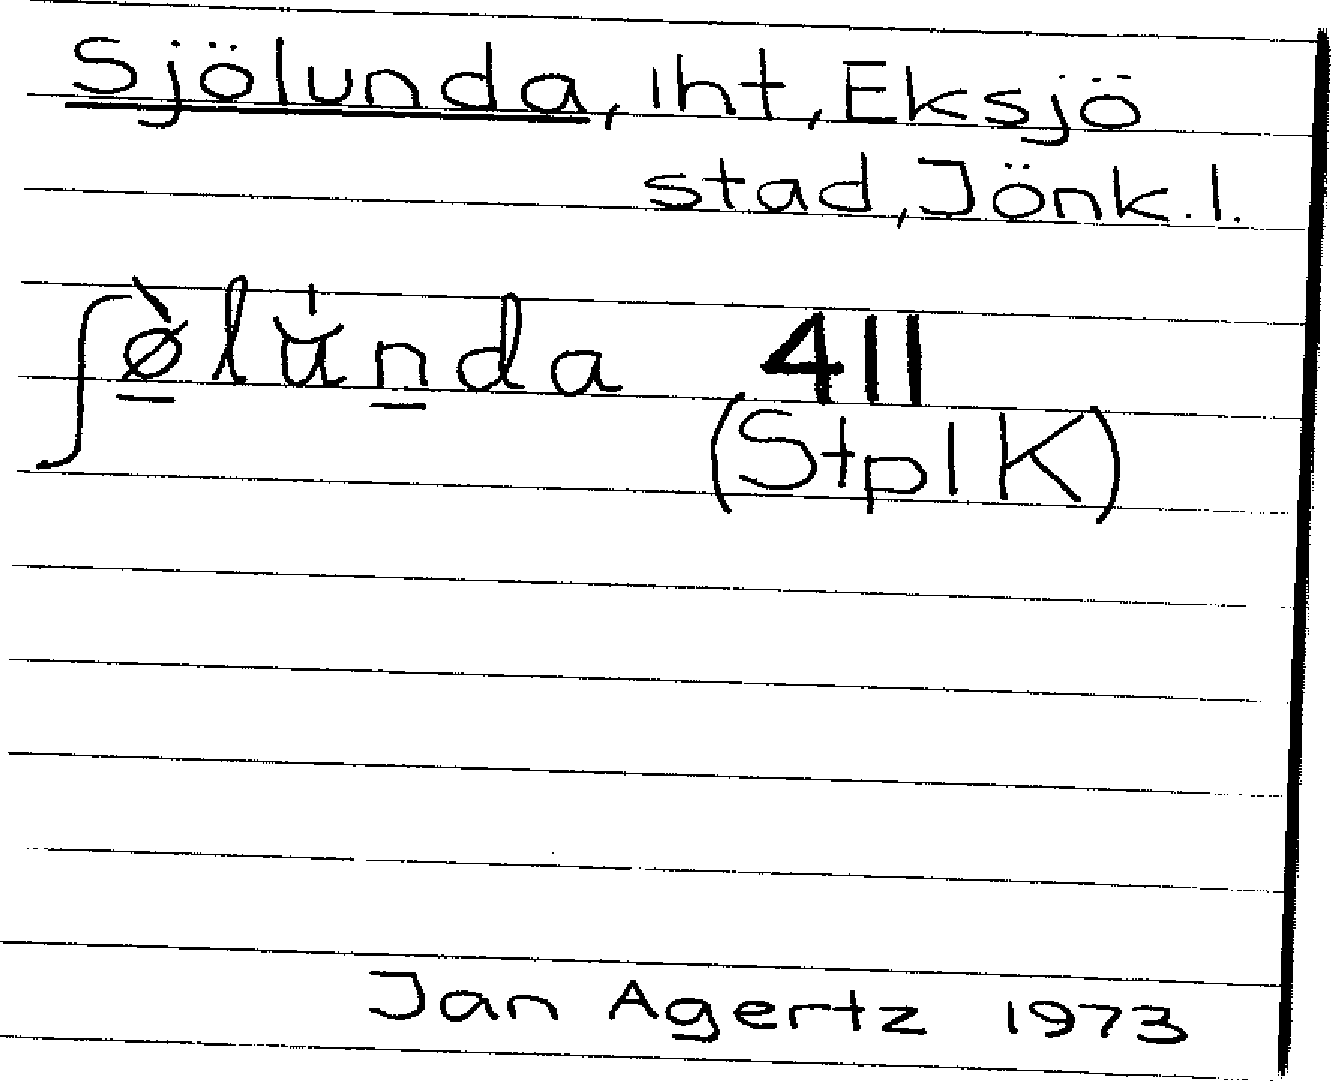 Sjölunda, iht, Eksjö
stad, Jönk. l.
ʃø̀lu̇nda 411
(Stpl K)
Jan Agertz 1973